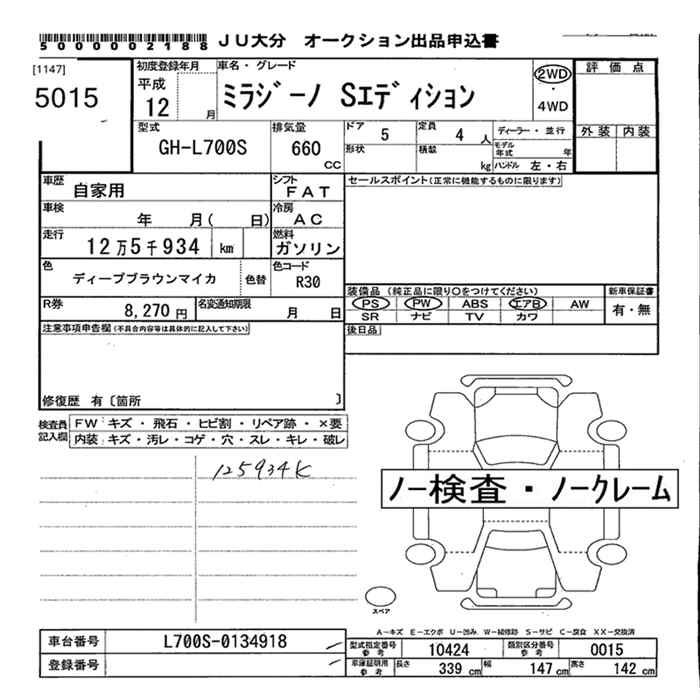 5000002188 JU大分 オークション出品申込書
[1147]
5015
初度登録年月
平成
12 月
車名・グレード
ミラジーノ Sエディション
2WD
・
4WD
評価点
外装 内装
型式
GH-L700S
排気量
660
CC
ドア 5
定員 4 人
形状
積載 kg
ディーラー・並行
モデル年式 年
ハンドル 左・右
車歴 自家用
シフト FAT
車検 年 月( 日)
冷房 AC
走行 12万5千934 km
燃料 ガソリン
色 ディープブラウンマイカ 色替
色コード R30
R券 8,270円
名変通知期限 月 日
セールスポイント(正常に機能するものに限ります)
装備品(純正品に限り○をつけてください)
PS PW ABS エアB AW
SR ナビ TV カワ
新車保証書
有・無
後日品
注意事項申告欄(不具合内容等は具体的に記入して下さい)
修復歴 有〔箇所 〕
検査員記入欄
FW:キズ・飛石・ヒビ割・リペア跡・×要
内装:キズ・汚レ・コゲ・穴・スレ・キレ・破レ
125934K
ノー検査・ノークレーム
スペア
A-キズ E-エクボ U-凹み W-補修跡 S-サビ C-腐食 XX-交換済
車台番号 L700S-0134918
登録番号
型式指定番号参考 10424
類別区分番号参考 0015
車庫証明用参考
長さ 339 cm
幅 147 cm
高さ 142 cm